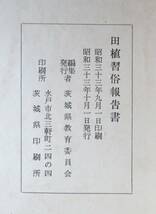 田植習俗報告書
昭和三十三年九月一日印刷
昭和三十三年十月一日発行
編集者
発行
茨城県教育委員会
水戸市北三軒町二四の四
印刷所
茨城県印刷所